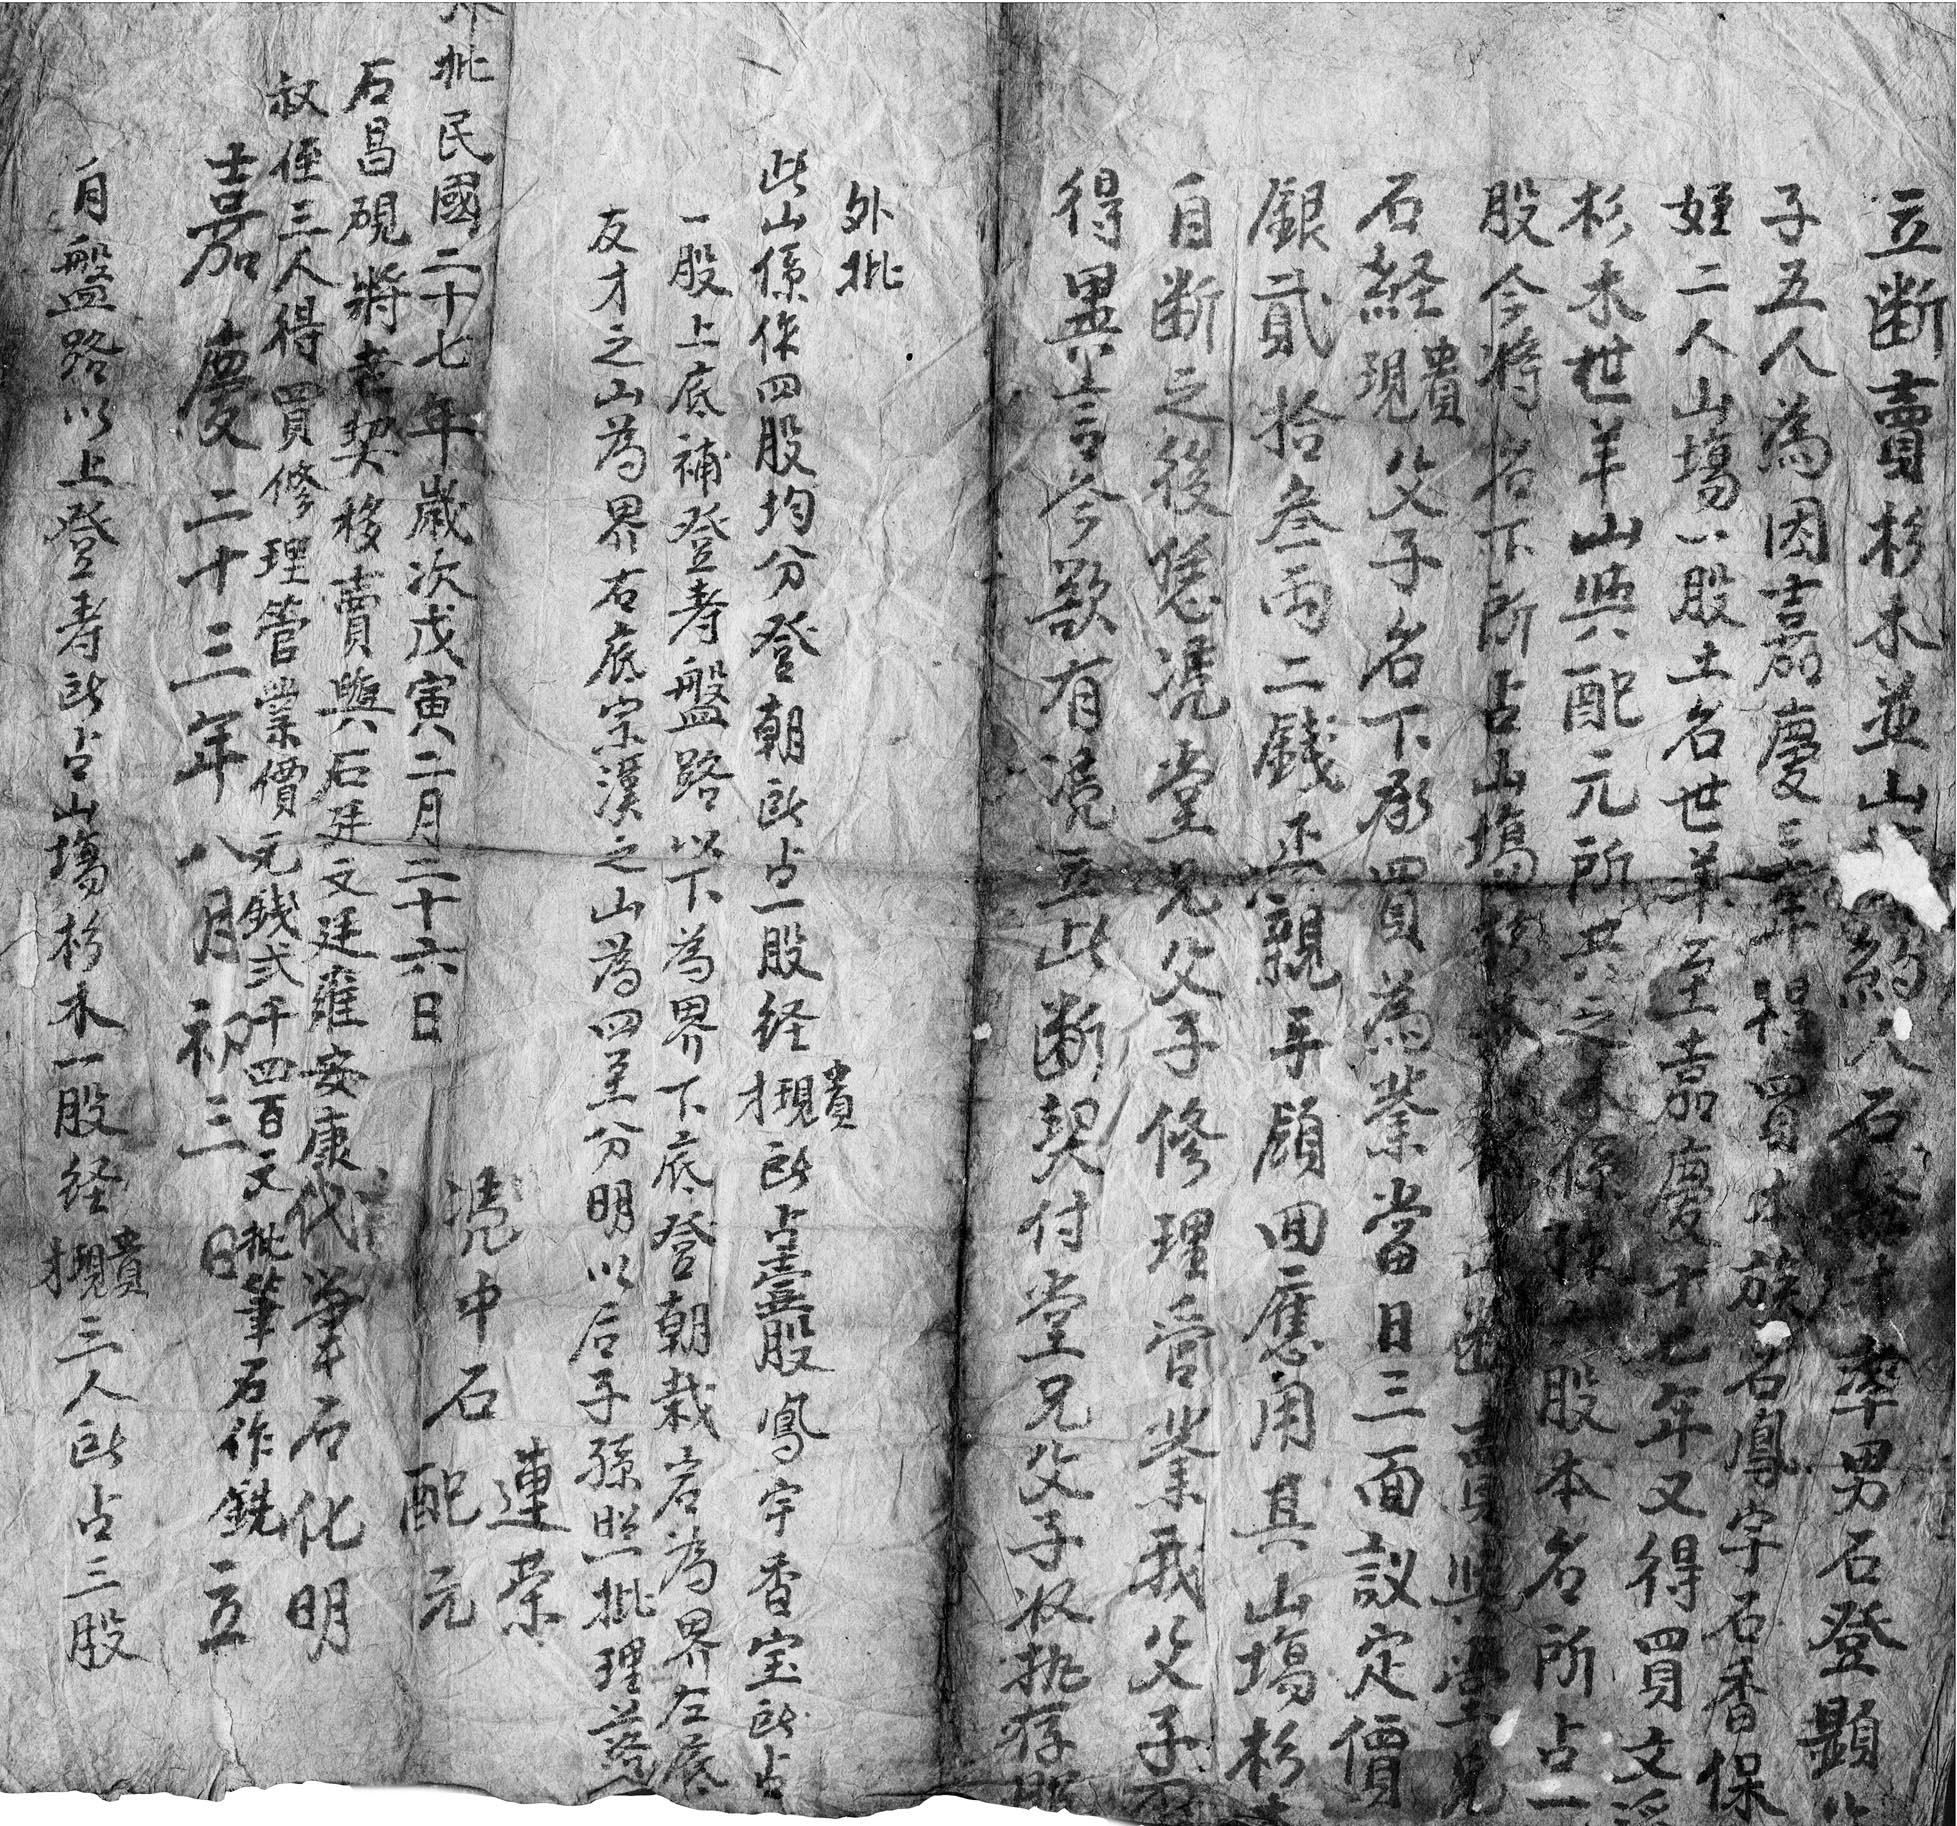 立断賣杉木並山約人石才率男石登顯
子五人為因嘉慶三年得買本族石鳳宇石香保
姪二人山塲一股土名世羊至嘉慶十七年又得買文
杉木世羊山與配元所共之木係股本名所占一
股今將名下所占山塲杉木山出賣與堂兄
石経現貴父子名下承買為業當日三面議定價
銀貳拾叁両二錢正親手領回應用其山塲杉
自断之後恁凴堂兄父子修理管業我父子不
得異言今欲有凴立此断契付堂兄父子收执存照
外批
此山係作四股均分登朝所占一股経才現貴所占壹股鳳宇香宝所占
一股上底補登寿盤路以下為界下底登朝栽岩為界左底
友才之山為界右底宗漢之山為四至分明以后子孫照批理落
凴中石連荣配元
外批民國二十七年歲次戊寅二月二十六日
石昌硯將老契移賣與石廷文廷雍安康代筆石化明
叔侄三人得買修理管業價元錢弍千四百文批筆石作銑
嘉慶二十三年八月初三日立
自盤路以上登寿所占山塲杉木一股経才現貴三人所占三股